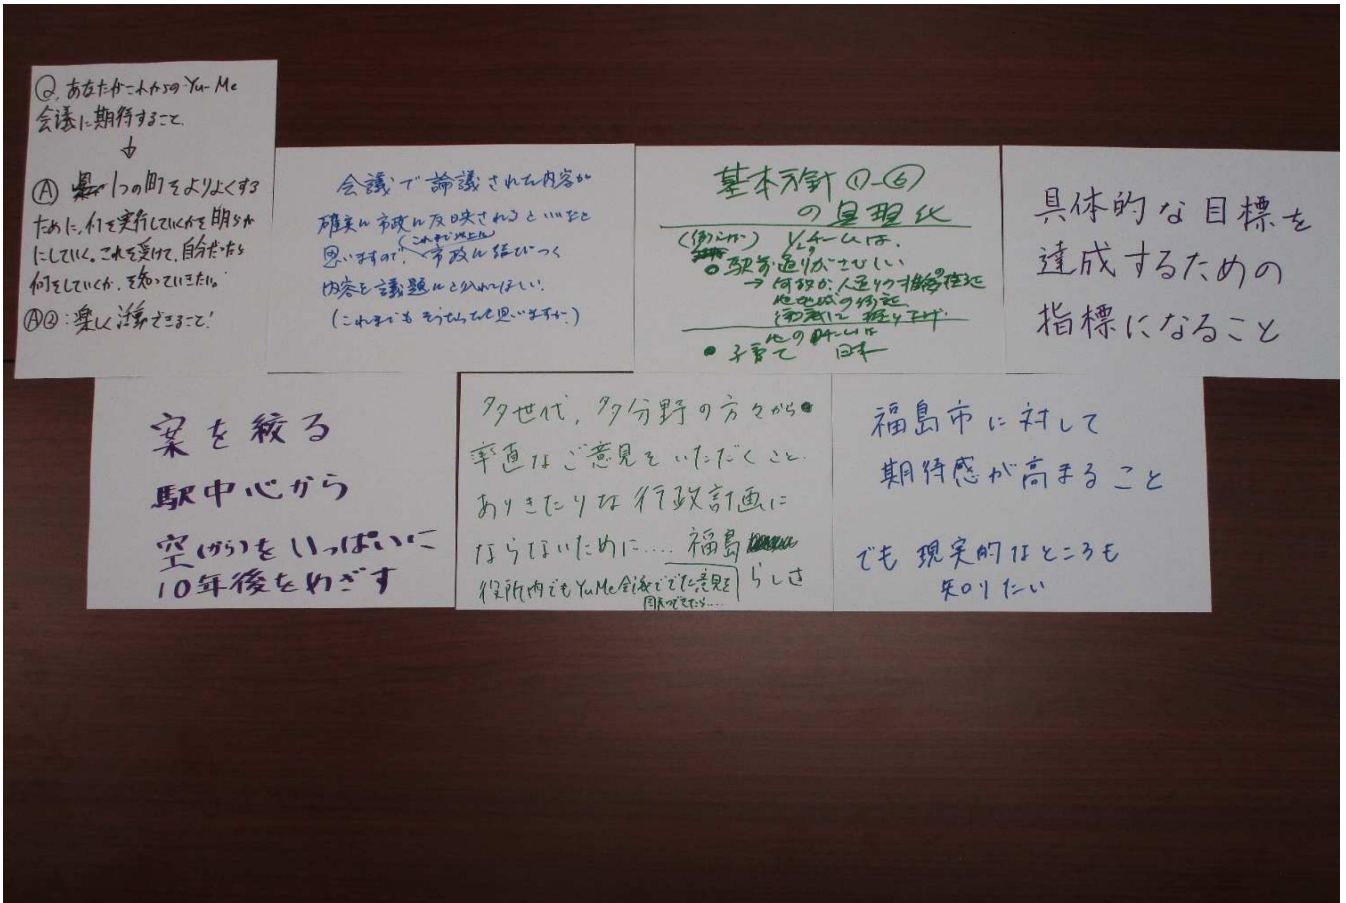 Q. あなたがこれからのYu-Me
会議に期待すること.
↓
Ⓐ 1つの町をよりよくする
ために、何を実行していくかを明らか
にしていく。これを受けて、自分だったら
何をしていくか、を知っていきたい。
Ⓐ②:楽しく活動できること!
会議で論議された内容が
確実に市政に反映されるといいなと
思いますので、これまで以上に市政に結びつく
内容を議題にとり入れてほしい.
(これまでもそうだったと思いますが。)
基本方針①-⑥
の具現化
Yんチームは、
駅前通りがさびしい
→何故か、人通りの推移の検証
他地域の例証
他のチームは
子育て 日本一
具体的な目標を
達成するための
指標になること
案を絞る
駅中心から
空(から)をいっぱいに
10年後をめざす
多世代,多分野の方々から
率直なご意見をいただくこと.
ありきたりな行政計画に
ならないために.... 福島
らしさ
役所内でもYuMe会議ででた意見を
福島市に対して
期待感が高まること
でも 現実的なところも
知りたい